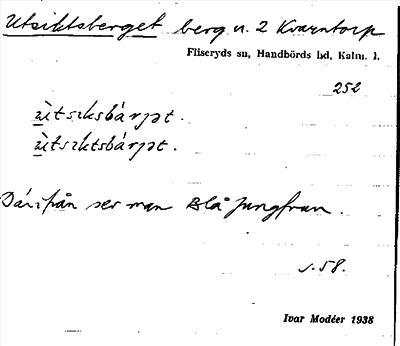 Utsiktsberget berg n. 2 Kvarntorp
Fliseryds sn, Handbörds hd, Kalm. l.
252
ùtsiksbárjət.
ùtsiktsbárjət.
Därifrån ser man Blå Jungfrun.
s. 58.
Ivar Modéer 1938